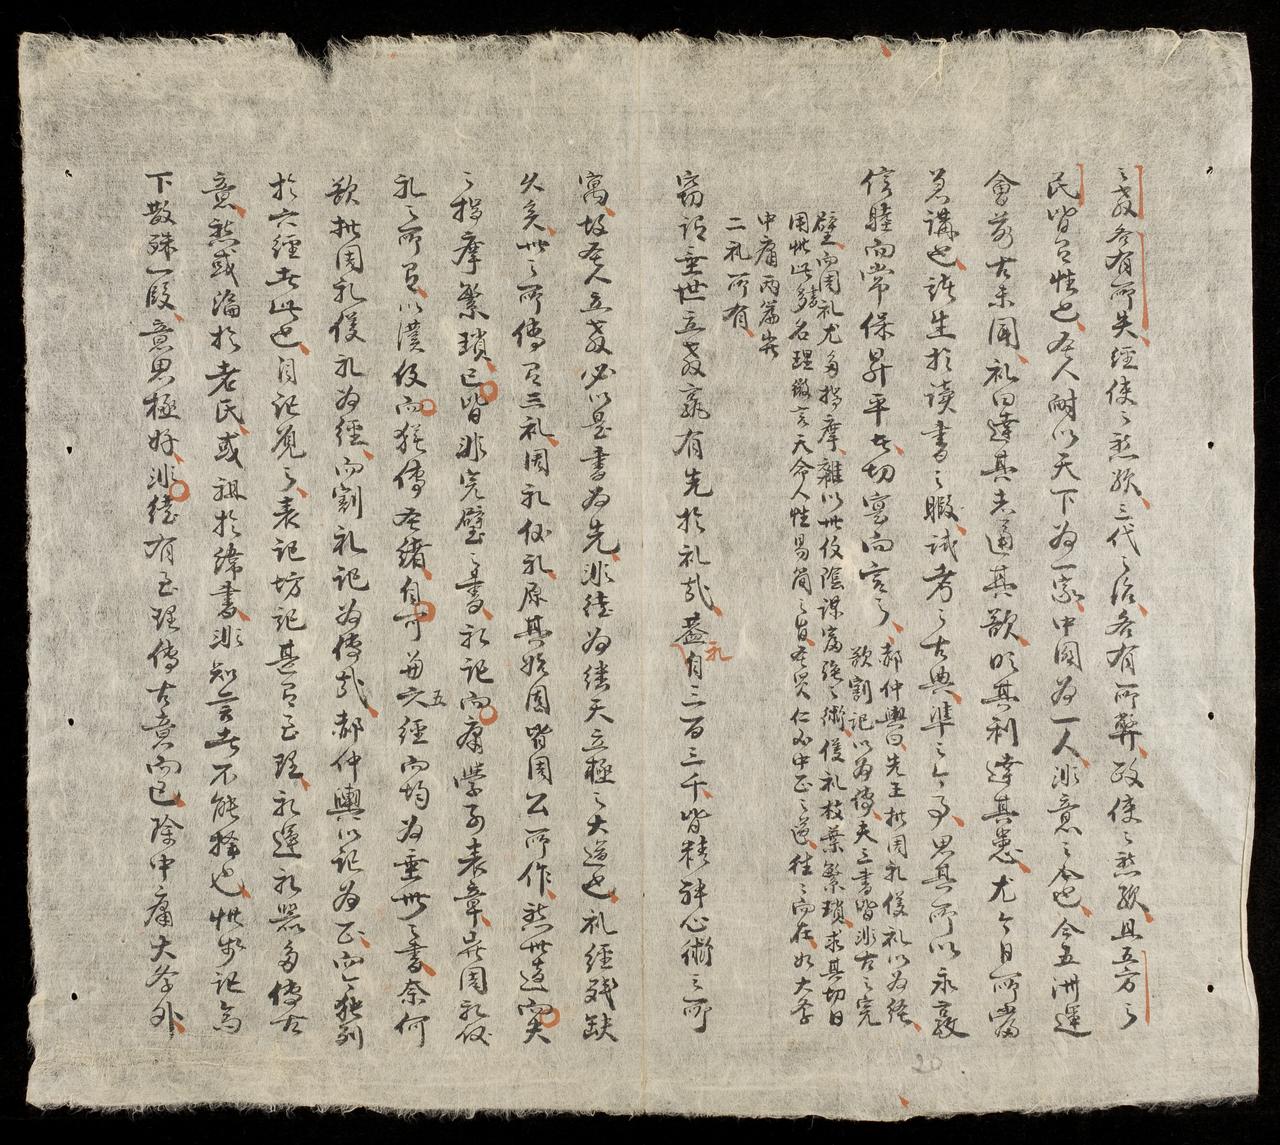 之教各有所失經使之然歟三代之治各有所弊政使之然歟且五方之
民皆有性也聖人耐以天下為一家中國為一人非意之也今五洲運
會萬古未聞礼曰達其志通其欲明其利達其患尤今日所當
急講也謹生於讀書之暇試考之古典準之今事思其所以永敦
信睦而常保昇平者切實而言之
郝仲輿曰先王批周礼儀礼以為經
欲割記以為傳夫三書皆非古之完
璧而周礼尤多揣摩雜以世伎陰謀富強之術儀礼枝葉繁瑣求其切日
用世此多名理微言天命人性易簡之旨聖賢仁義中正之道往之而在如大學
中庸两篇豈
二礼所有
竊謂垂世立教孰有先於礼哉蓋自礼三百三千皆精神心術之所
寓故聖人立教必以是書為先非徒為繼天立極之大道也礼經殘缺
久矣世之所傳有三礼周礼仪礼原其始固皆周公所作然世遠而失
之揣摩繁瑣已皆非完璧之書礼記而庸學可表章豈周礼仪
礼之所有以漢伎而猶傳聖緒自可並六五經而均為垂世之書奈何
欲批周礼儀礼為經而割礼記為傳哉郝仲輿以記為正而能列
於六經者此也月記覓之表記坊記甚有至理礼運礼器多傳古
意然或淪於老氏或祖於緯書非知言者不能擇也惟學記為
下散殊一段意思極好非徒有至理傳古意而已除中庸大學外